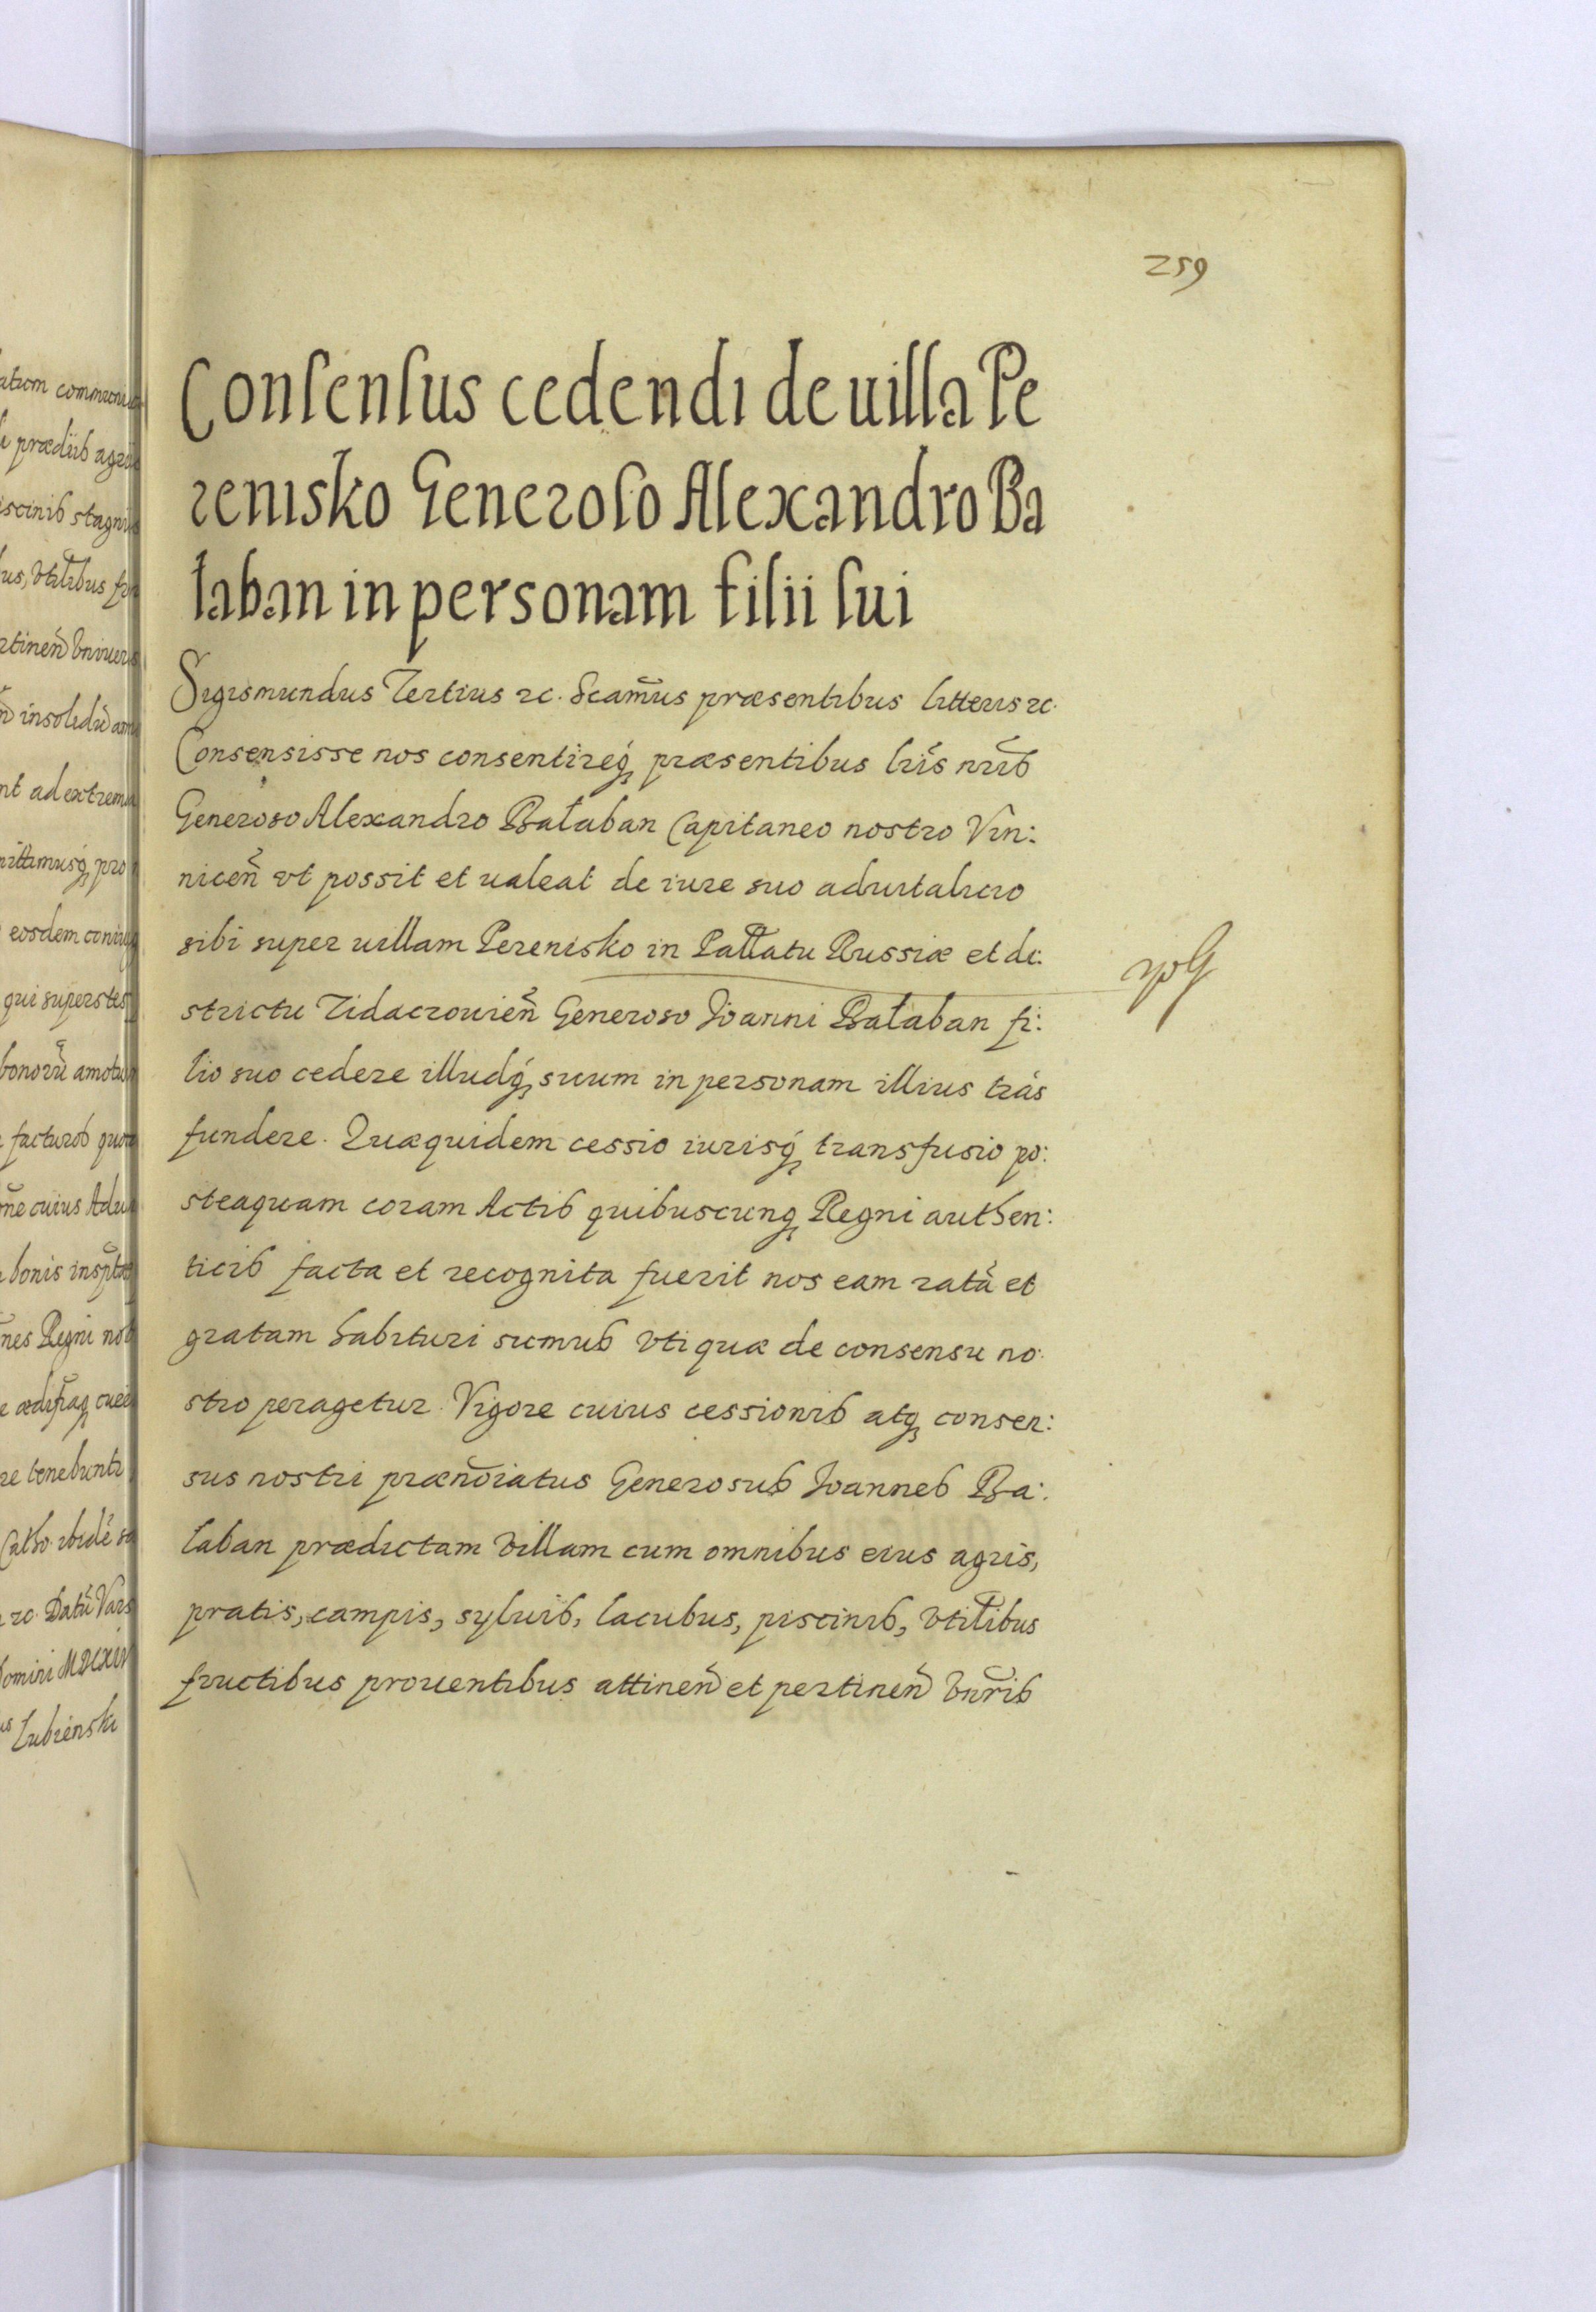 259
Consensus cedendi de uilla Pe
renisko Generoso Alexandro Ba
łaban in personam filii sui
Sigismundus Tertius etc. Scam̃us præsentibus litteris etc.
Consensisse nos consentireq́ præsentibus lr̃is nr̃is
Generoso Alexandro Bałaban Capitaneo nostro Vin:
niceñ vt possit et ualeat de iure suo aduitalicio
sibi super uillam Perenisko in Pallatu Russiæ et di:
strictu Zidaczouieñ Generoso Joanni Bałaban fi:
lio suo cedere illudq́ suum in personam illius trás
fundere. Quæquidem cessio iurisq́ transfusio po:
steaquam coram Actis quibuscunq Regni authen:
ticis facta et recognita fuerit nos eam ratã et
gratam habituri sumus vti quæ de consensu no:
stro peragetur. Vigore cuius cessionis atq consen:
sus nostri prænoĩatus Generosus Joannes Ba:
laban prædictam villam cum omnibus eius agris,
pratis, campis, syluis, lacubus, piscinis, vtilibus
fructibus prouentibus attineñ et pertineñ vnr̃is
atum communi
prædiis agri
iscinis stagni
us, vtilibus
rtineñ vniuers
insolidũ am
nt ad extrema
nittimusq́ pro
eosdem coniug
qui superstes
bonorũ amotu
facturos quo
cuius Adu
bonis insp̃t
nes Regni no
re tenebuntr
Datũ Vars
Domini MDCXIV
us Lubienski